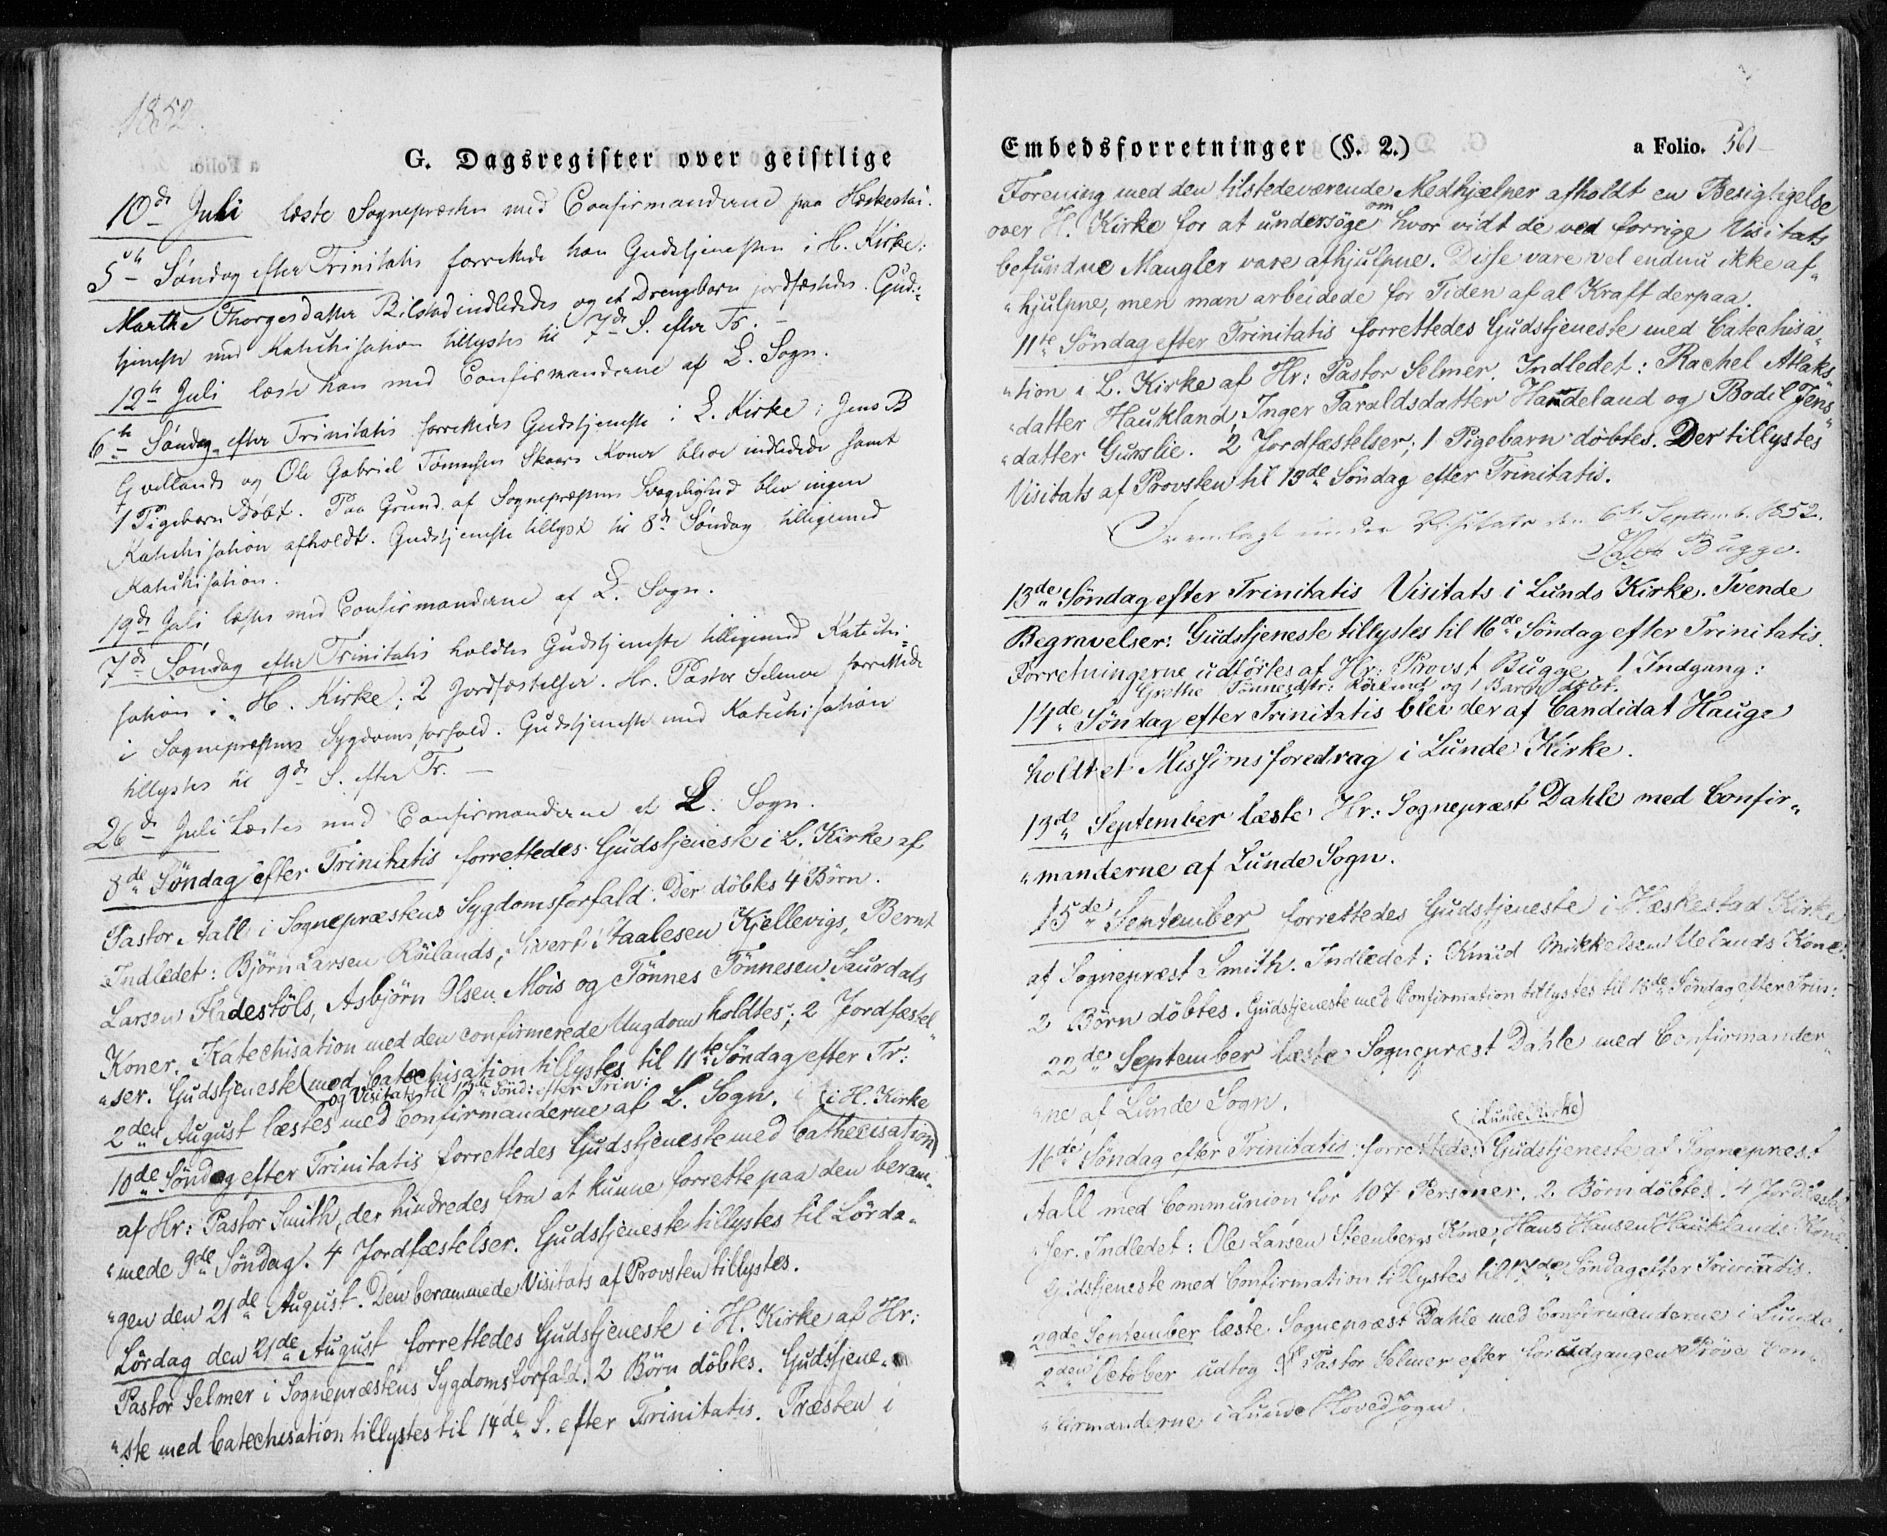 1852.
G. Dagsregister over geistlige
10de Juli læste Sognepræsten med Confirmanderne paa Hæskestad.
5te Søndag efter Trinitatis forrettede han Gudstjenesten i H. Kirke;
Marthe Thorgersdatter Bilstad indlededes og et Drengebarn jordfæstedes. Guds-
tjeneste med Katechisation tillystes til 7de S. efter Tr. –
12te Juli læste han med Confirmanderne af L. Sogn.
6te Søndag efter Trinitatis forrettedes Gudstjeneste i L. Kirke; Jens B
Gvellands og Ole Gabriel Tønnesen Skaars Koner bleve indledede samt
1 Pigebarn døbt. Paa Grund af Sognepræstens Svagelighed blev ingen
Katechisation afholdt. Gudstjeneste tillyst til 8de Søndag tilligemed
Katechisation.
19de Juli læstes med Confirmanderne af L. Sogn.
7de Søndag efter Trinitatis holdtes Gudstjeneste tilligemed Katechi-
sation i H. Kirke; 2 Jordfæstelser. Hr. Pastor Selmer forrettede
i Sognepræstens Sygdomsforfald. Gudstjeneste med Katechisation
tillystes til 9de S. efter Tr. –
26de Juli læstes med Confirmanderne af L. Sogn.
8de Søndag efter Trinitatis forrettedes Gudstjeneste i L. Kirke af
Pastor Aall i Sognepræstens Sygdomsforfald. Der döbtes 4 Börn.
Indledet: Björn Larsen Röilands, Sivert Staalesen Kjellevigs, Bernt
Larsen Fladestöls, Asbjörn Olsen Mois og Tönnes Tönnesen Saurdals
Koner. Katechisation med den confirmerede Ungdom holdtes; 2 Jordfæstel„
„ser. Gudstjeneste (med Catechisation tillystes til 11te Söndag efter Tr:
og Visitats til 13de Sönd: efter Trin:
2den August læstes med Confirmanderne af L. Sogn. (i H. Kirke
10de Söndag efter Trinitatis forrettedes Gudstjeneste med Cathecisation)
af Hr: Pastor Smith, der hindredes fra at kunne forrette paa den beram„
„mede 9de Söndag. 4 Jordfæstelser. Gudstjeneste tillystes til Lörda„
„gen den 21de August. Den berammede Visitats af Provsten tillystes.
Lördag den 21de August forrettedes Gudstjeneste i H. Kirke af Hr:
Pastor Selmer i Sognepræstens Sygdomsforfald. 2 Börn döbtes. Gudstjene„
„ste med Catechisation tillystes til 14de S. efter Trinitatis. Præsten i
Embedsforretninger (§. 2.)
a Folio. 561
Forening med den tilstedeværende Medhjælper afholdt en Besigtigelse
over H. Kirke for at undersöge om hvor vidt de ved forrige Visitats
befundne Mangler vare afhjulpne. Disse vare vel endnu ikke af„
„hjulpne, men man arbeidede for Tiden af al Kraft derpaa.
11te Söndag efter Trinitatis forrettedes Gudstjeneste med Catechisa„
„tion i L. Kirke af Hr: Pastor Selmer. Indledet: Rachel Atlaks„
„datter Haukland, Inger Taraldsdatter Handeland og Bodil Jens„
„datter Gurslie. 2 Jordfæstelser; 1 Pigebarn döbtes. Der tillystes
Visitats af Provsten til 13de Söndag efter Trinitatis.
Fremlagt under Visitats den 6te Septemb. 1852.
Bugge.
13de Söndag efter Trinitatis Visitats i Lunds Kirke. Tvende
Begravelser: Gudstjeneste tillystes til 16de Söndag efter Trinitatis.
Forretningerne udförtes af Hr: Provst Bugge. 1 Indgang:
Grethe Tönnesdtr: og 1 Barn döbt.
14de Söndag efter Trinitatis blev der af Candidat Hauge
holdt et Missionsforedrag i Lunde Kirke.
13de September læste Hr: Sognepræst Dahle med Confir„
„manderne af Lunde Sogn.
15de September forrettedes Gudstjeneste i Hæskestad Kirke
af Sognepræst Smith. Indledet: Knud Mikkelsen Uelands Kone.
2 Börn döbtes. Gudstjeneste med Confirmation tillystes til 18de Söndag efter Trin:
22de September læste Sognepræst Dahle med Confirmander„
„ne af Lunde Sogn.
(i Lunde Kirke)
16de Söndag efter Trinitatis forrettedes Gudstjeneste af Sognepræst
Aall med Communion for 107 Personer. 2 Börn döbtes. 4 Jordfæstel„
„ser. Indledet: Ole Larsen Steenbergs Kone, Hans Hansen Hauklands Kone.
Gudstjeneste med Confirmation tillystes til 17de Söndag efter Trinitatis.
29de September læste Sognepræst Dahle med Confirmanderne i Lunde.
2den October udtog Pastor Selmer efter forudgangen Pröve Con„
„firmanderne i Lunde Hovedsogn.